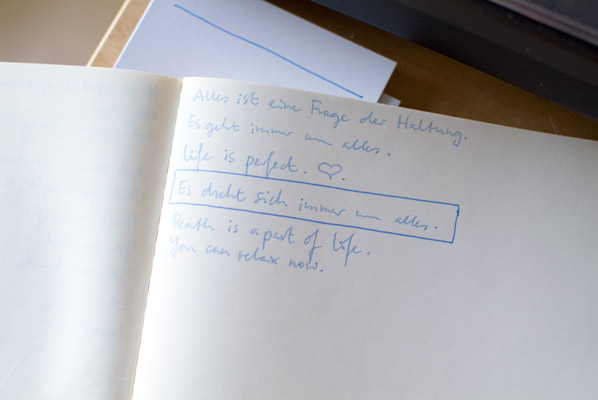 Alles ist eine Frage der Haltung.
Es geht immer um alles.
Life is perfect. ♡.
Es dreht sich immer um alles.
Death is a part of life.
You can relax now.